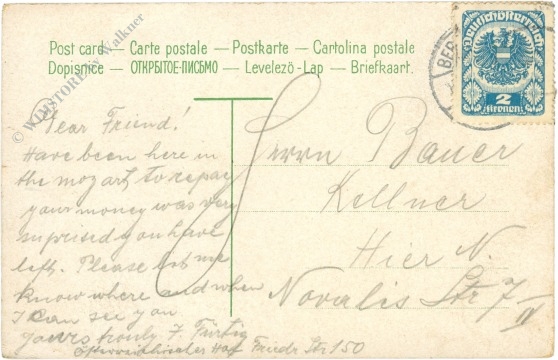 Post card — Carte postale — Postkarte — Cartolina postale
Dopisnice — ОТКРЫТОЕ-ПИСЬМО — Levelező-Lap — Briefkaart.
Deutschösterreich
2
Kronen
BER
© WIMSTORE by Walkner
Dear Friend!
Have been here in
the mozart to repay
your money was very
surprised you have
left. Please let me
know where and when
I can see you
yours truly F. Fürtig
Friedr Str 150
Herrn Bauer
Kellner
Hier N.
Novalis Str 7 IV